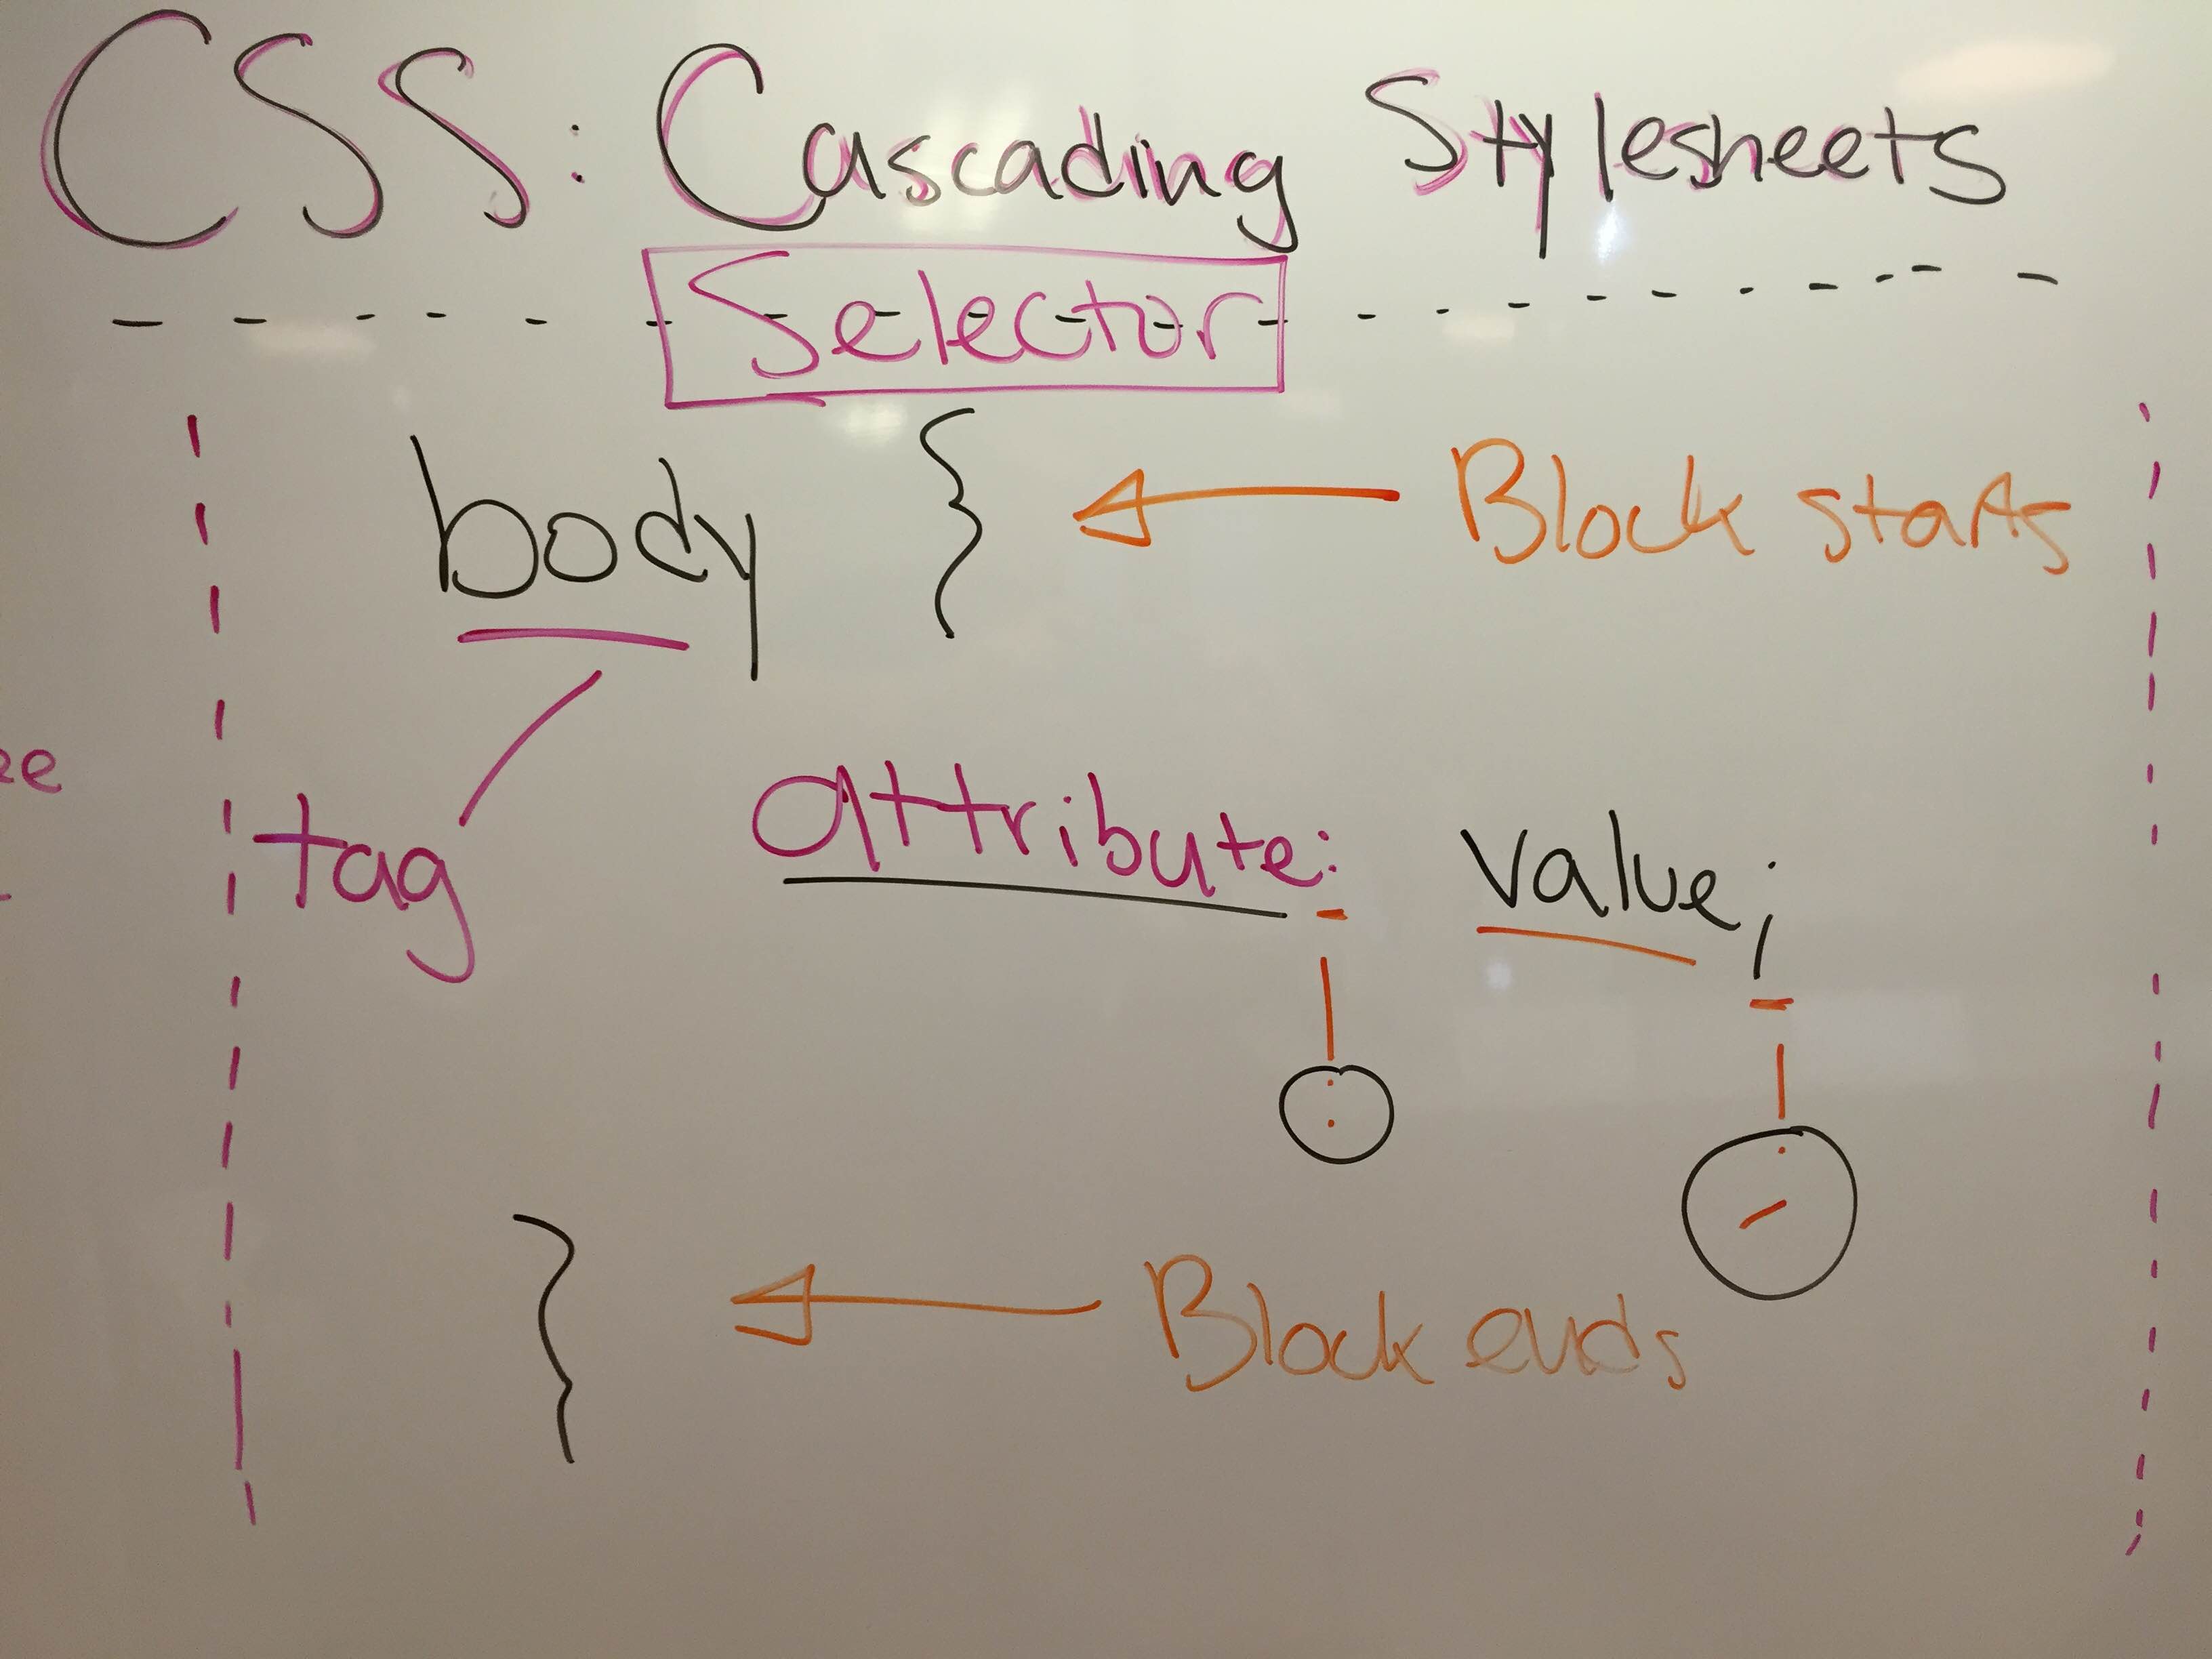 CSS: Cascading Stylesheets
Selector
body {
Block starts
tag
attribute: value;
:
;
}
Block ends